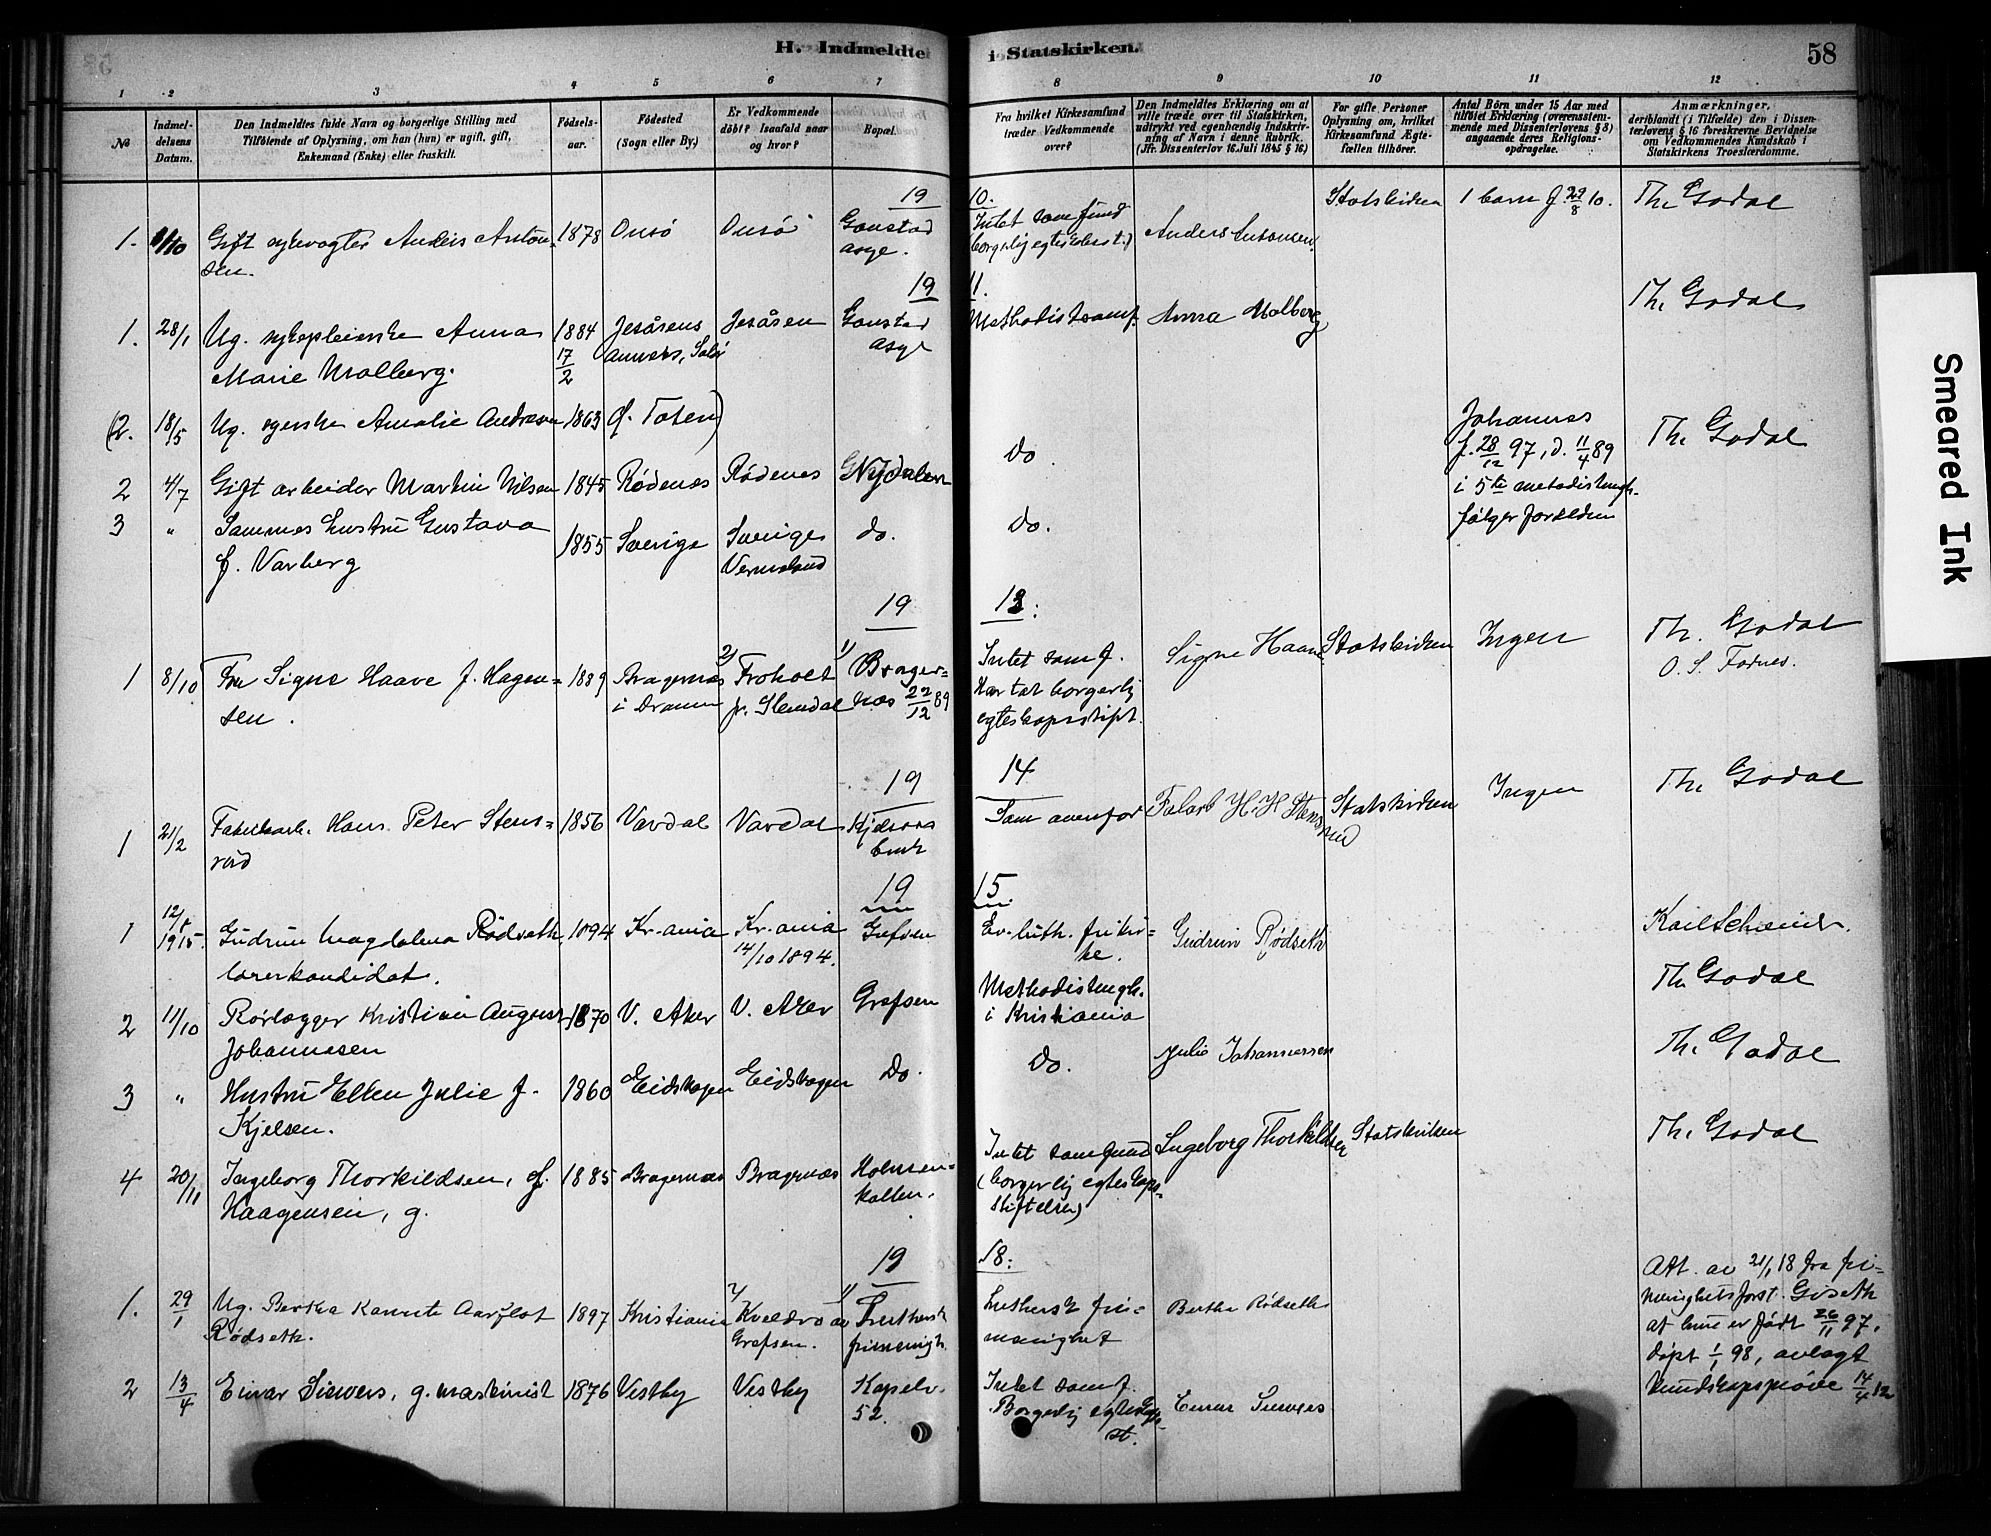 H. Indmeldte i Statskirken.
58
1 2 3 4 5 6 7 8 9 10 11 12
No
Indmel-
delsens
Datum.
Den Indmeldtes fulde Navn og borgerlige Stilling med
Tilføiende af Oplysning, om han (hun) er ugift, gift,
Enkemand (Enke) eller fraskilt.
Fødsels-
aar.
Fødested
(Sogn eller By.)
Er Vedkommende
døbt? Isaafald naar
og hvor?
Bopæl.
Fra hvilket Kirkesamfund
træder Vedkommende
over?
Den Indmeldtes Erklæring om at
ville træde over til Statskirken,
udtrykt ved egenhændig Indskriv-
ning af Navn i denne Rubrik.
(Jfr. Dissenterlov 16 Juli 1845 § 16)
For gifte Personer
Oplysning om, hvilket
Kirkesamfund Ægte-
fællen tilhører.
Antal Børn under 15 Aar med
tilføiet Erklæring (overensstem-
mende med Dissenterlovens § 8)
angaaende deres Religions-
opdragelse.
Anmærkninger,
deriblandt (i Tilfælde) den i Dissen-
terlovens § 16 foreskrevne Bevidnelse
om Vedkommendes Kundskab i
Statskirkens Troeslærdomme.
19 10.
1. Gift sykevogter Anders Anton-
sen.
1878 Onsø Onsø Gaustad
asyl.
Intet samfund
(borgerlig egteskabsst.)
Anders Antonsen
Statskirken 1 barn f. 29/8 10. Th. Godal
19 11.
1. 28/1 Ug. sykepleierske Anna
Marie Malberg.
1884
17/2
Gaustad
asyl
Methodistsamf. Anna Malberg Th. Godal
(2. 18/5 Ug. Amalie Andresen 1863 f. Toten)
2 4/7 Gift arbeider Martin Nilsen 1845 Rødenes Rødenes Nydalen
do
Johannes
f. 28/12 97, d. 11/4 89
i 5te metodistmgh.
følger forældrene
Th. Godal
3 " Sammes hustru Gustava
f. Varberg
1855 Sverige Sverige
Vermland
do. do.
19 13.
1 8/10 Fru Signe Haave f. Hagen-
sen.
1889 Bragernæs
i Dramm
2) Froholt
pr. Slemdal
1) Brager-
næs 22/12 89
Intet samf.
Har tat borgerlig
egteskapsstift.
Signe Haave Statskirken Ingen Th. Godal
O. S. Fodnes.
19 14
1 21/2 Fabrikarb. Hans Peter Stens-
rud
1856 Vardal Vardal Kjelsaas
bruk
Som ovenfor Statskirken Ingen Th. Godal
19 15
1 12/8
1915.
Gudrun Magdalena Rødseth
lærerkandidat.
1894 Kr.-ania Kr.-ania
14/10 1894.
Grefsen
Ev.-luth. frikir-
ke.
Gudrun Rødseth
2 11/10 Rørlægger Kristian August
Johannesen
1870 V. Aker V. Aker Grefsen
Methodistmgh.
i Kristiania
Th. Godal
3 " Hustru Ellen Julie f.
Kjelsen.
1860 Eidskogen Eidskogen Do. Do. Julie Johannessen Th. Godal
4 20/11 Ingeborg Thorkildsen, f.
Haagensen, g.
1885 Bragernæs Bragernæs Holmen-
kollen.
Intet samfund
(borgerlig egteskaps-
stiftelse)
Ingeborg Thorkildsen Statskirken Th. Godal
19 18.
1. 29/1 Ug. Bertha Kanute Aarflot
Rødseth.
1897 Kristiania
2) Kveldro
Grefsen.
1) Luthersk
frimenigh.
Luthersk fri-
menighet
Bertha Rødseth
Att. av 21/1 18 fra fri-
menighetsforst. Giseth
at hun er født 26/11 97,
døpt 1/1 98, avlagt
kundskapsprøve 14/4 12
2 13/4 Einar Siewers, g. maskinist 1876 Vestby Vestby Kapelv.
52.
Intet samf.
Borgerlig egteskaps-
st.
Einar Siewers
Smeared Ink